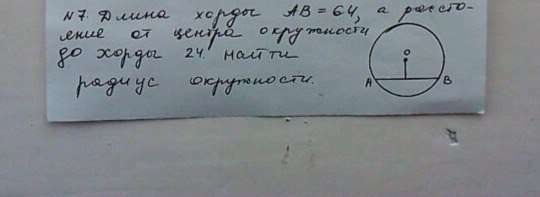 №7. Длина хорды AB = 64, а рассто-
яние от центра окружности
до хорды 24. найти
радиус окружности.
O
A B